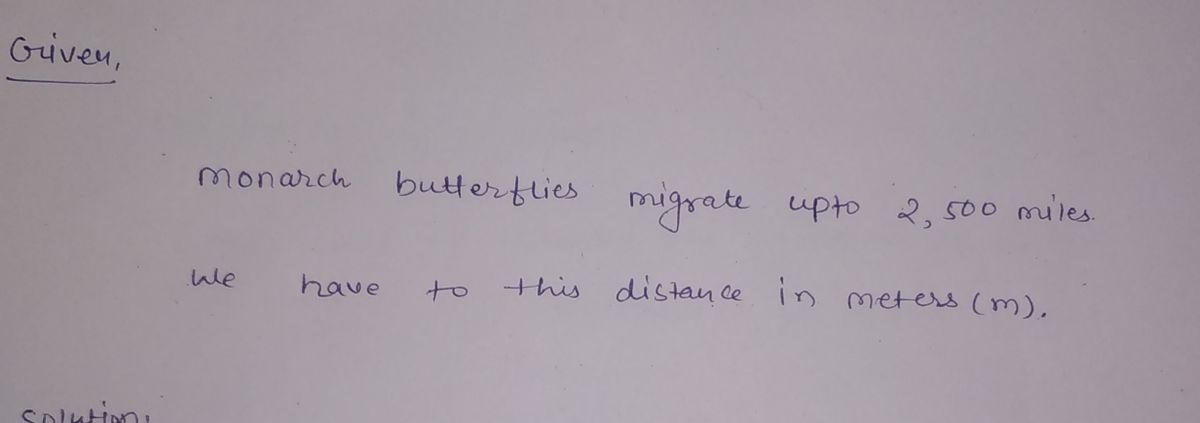 Given,
monarch butterflies migrate upto 2,500 miles.
We have to this distance in meters (m).
Solution: